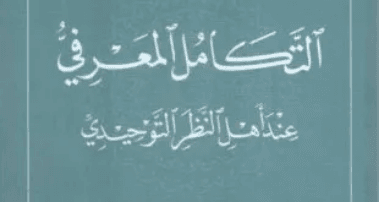 التَّكَامُل المَعْرِفيُّ
عِنْدَ أَهْلِ النَّظَرِ التَّوْحِيدِيِّ